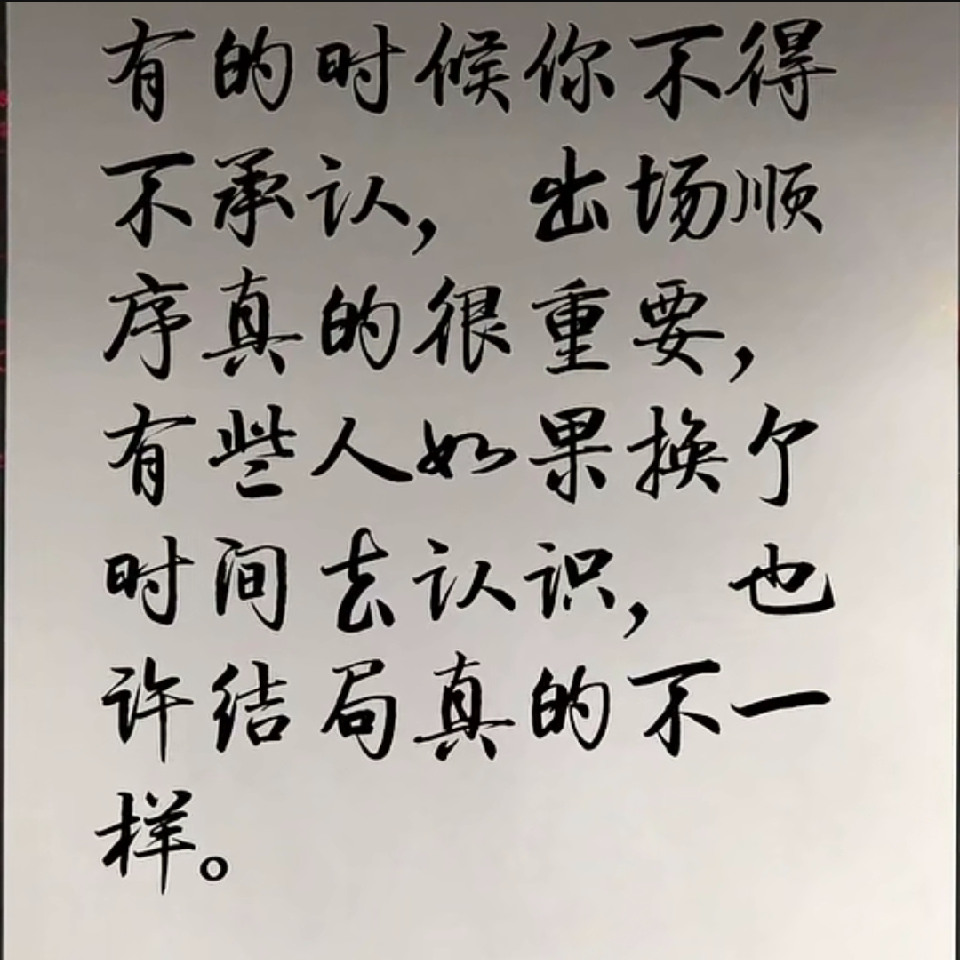 有的时候你不得
不承认，出场顺
序真的很重要，
有些人如果换个
时间去认识，也
许结局真的不一
样。